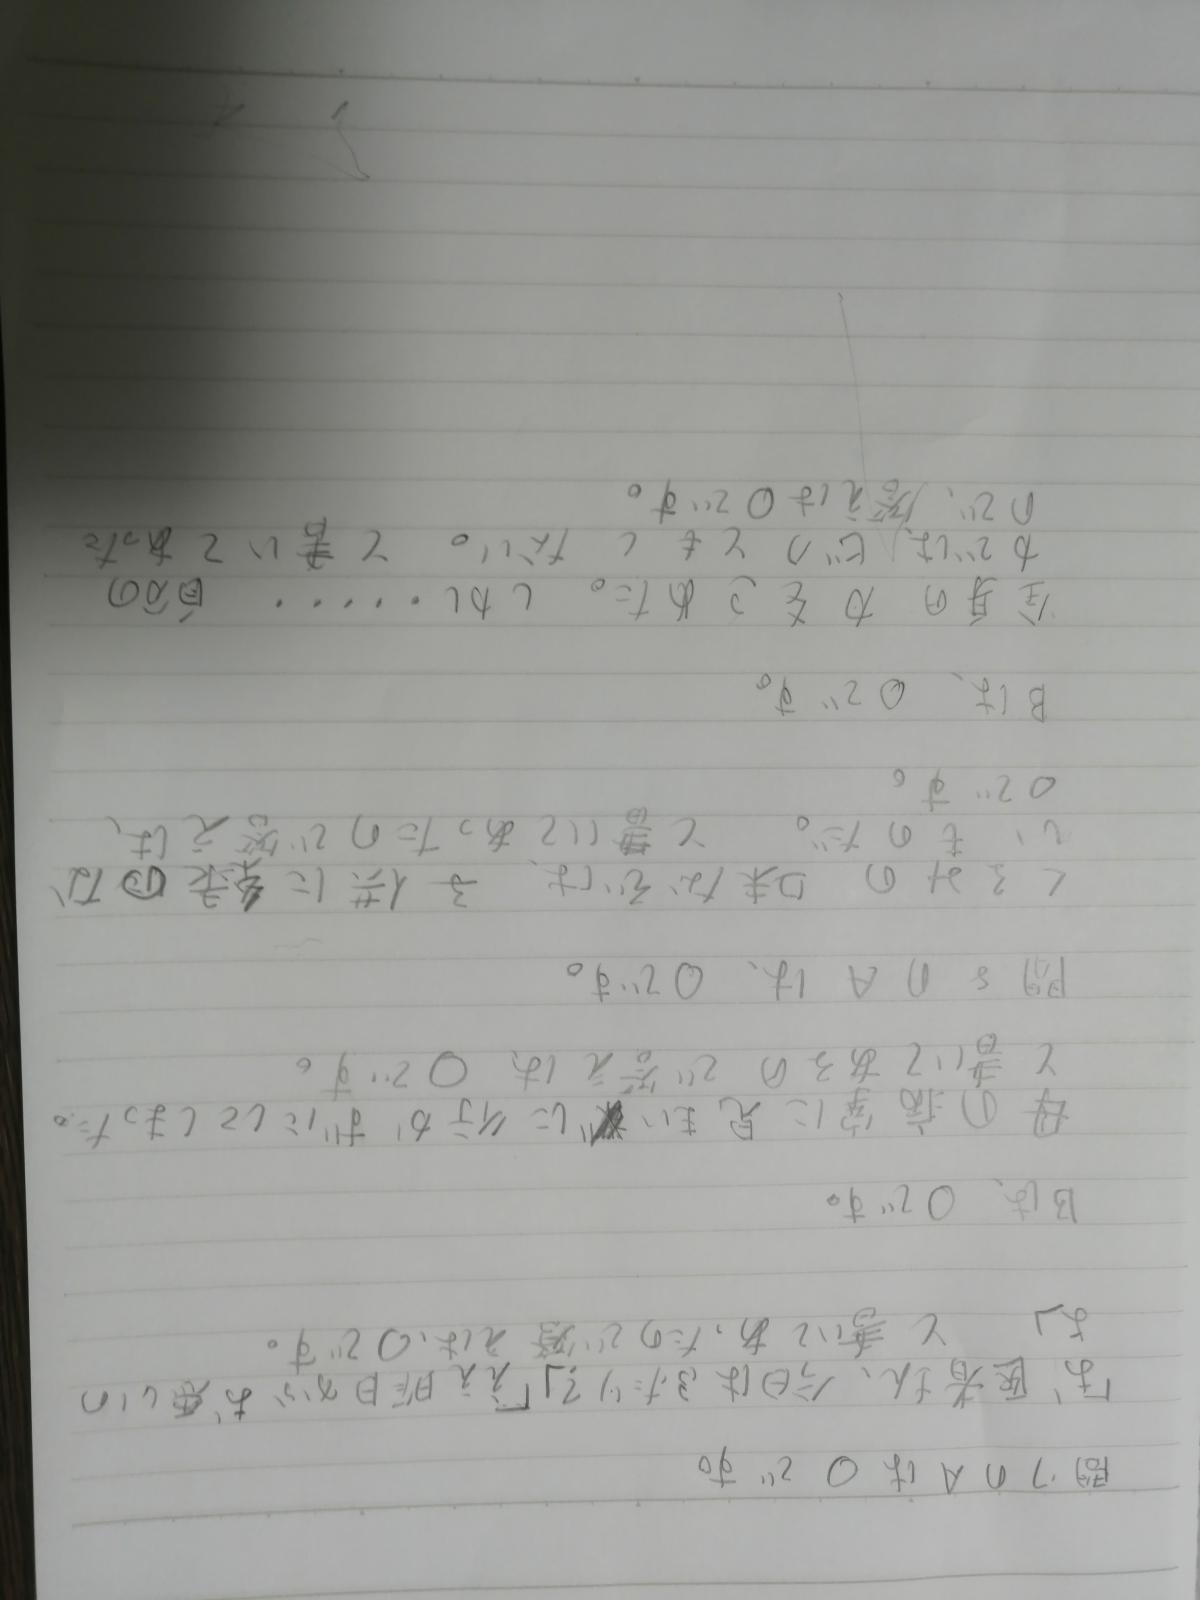 問7のAは〇です。
「お医者さん、今日は3たりで」「ええ昨日からお志しの
よ」 と書いてあったので答えは、〇です。
Bは、〇です。
母の病室に見まいに行かずにしてしまった。
と書いてあるので答えは、〇です。
問8のAは、〇です。
くるみの 味などは、子供に 来るのな
いものだ。 と書いてあったので答えは、
〇です。
Bは、〇です。
全身の力をこめた。 しかし・・・・・ 自分の
力では、びくともしない。 と書いてあった
ので、答えは〇です。